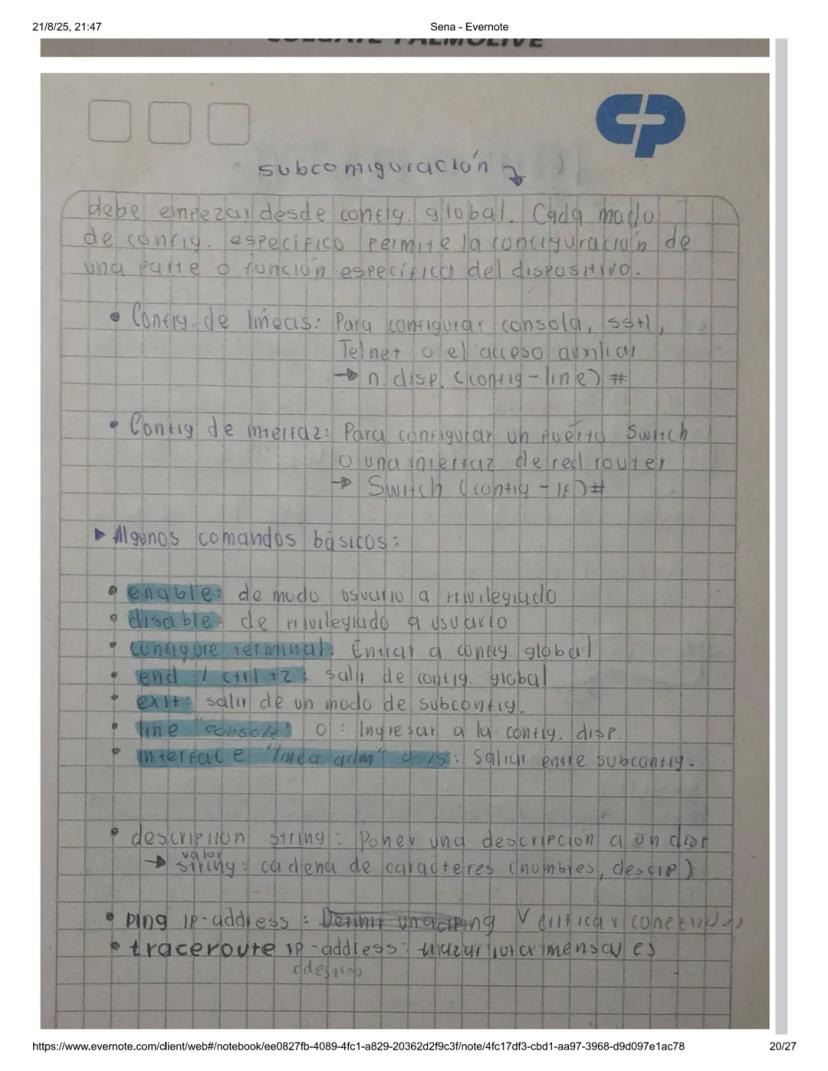 21/8/25, 21:47
Sena - Evernote
COLGATE PALMOLIVE
CP
subconfiguración
debe empezar desde config. global. Cada modo
de config. específico permite la configuración de
una parte o función específica del dispositivo.
• Config de líneas: Para configurar consola, ssh,
Telnet o el acceso auxiliar
→ n. disp. (config-line) #
• Config de interfaz: Para configurar un puerto Switch
o una interfaz de red router
→ Switch (config-if)#
▶ Algunos comandos básicos:
• enable: de modo usuario a privilegiado
• disable: de privilegiado a usuario
• configure terminal: Entrar a config. global
• end / ctrl +z: salir de config. global
• exit: salir de un modo de subconfig.
• line "console" 0: Ingresar a la config. disp.
• interface "línea adm" : Saltar entre subconfig.
• description string: Poner una descripción a un disp
valor
→ string: cadena de caracteres (nombres, descrip)
• Ping IP-address: Verificar
• traceroute IP-address: trazar mensajes
https://www.evernote.com/client/web#/notebook/ee0827fb-4089-4fc1-a829-20362d2f9c3f/note/4fc17df3-cbd1-aa97-3968-d9d097e1ac78
20/27